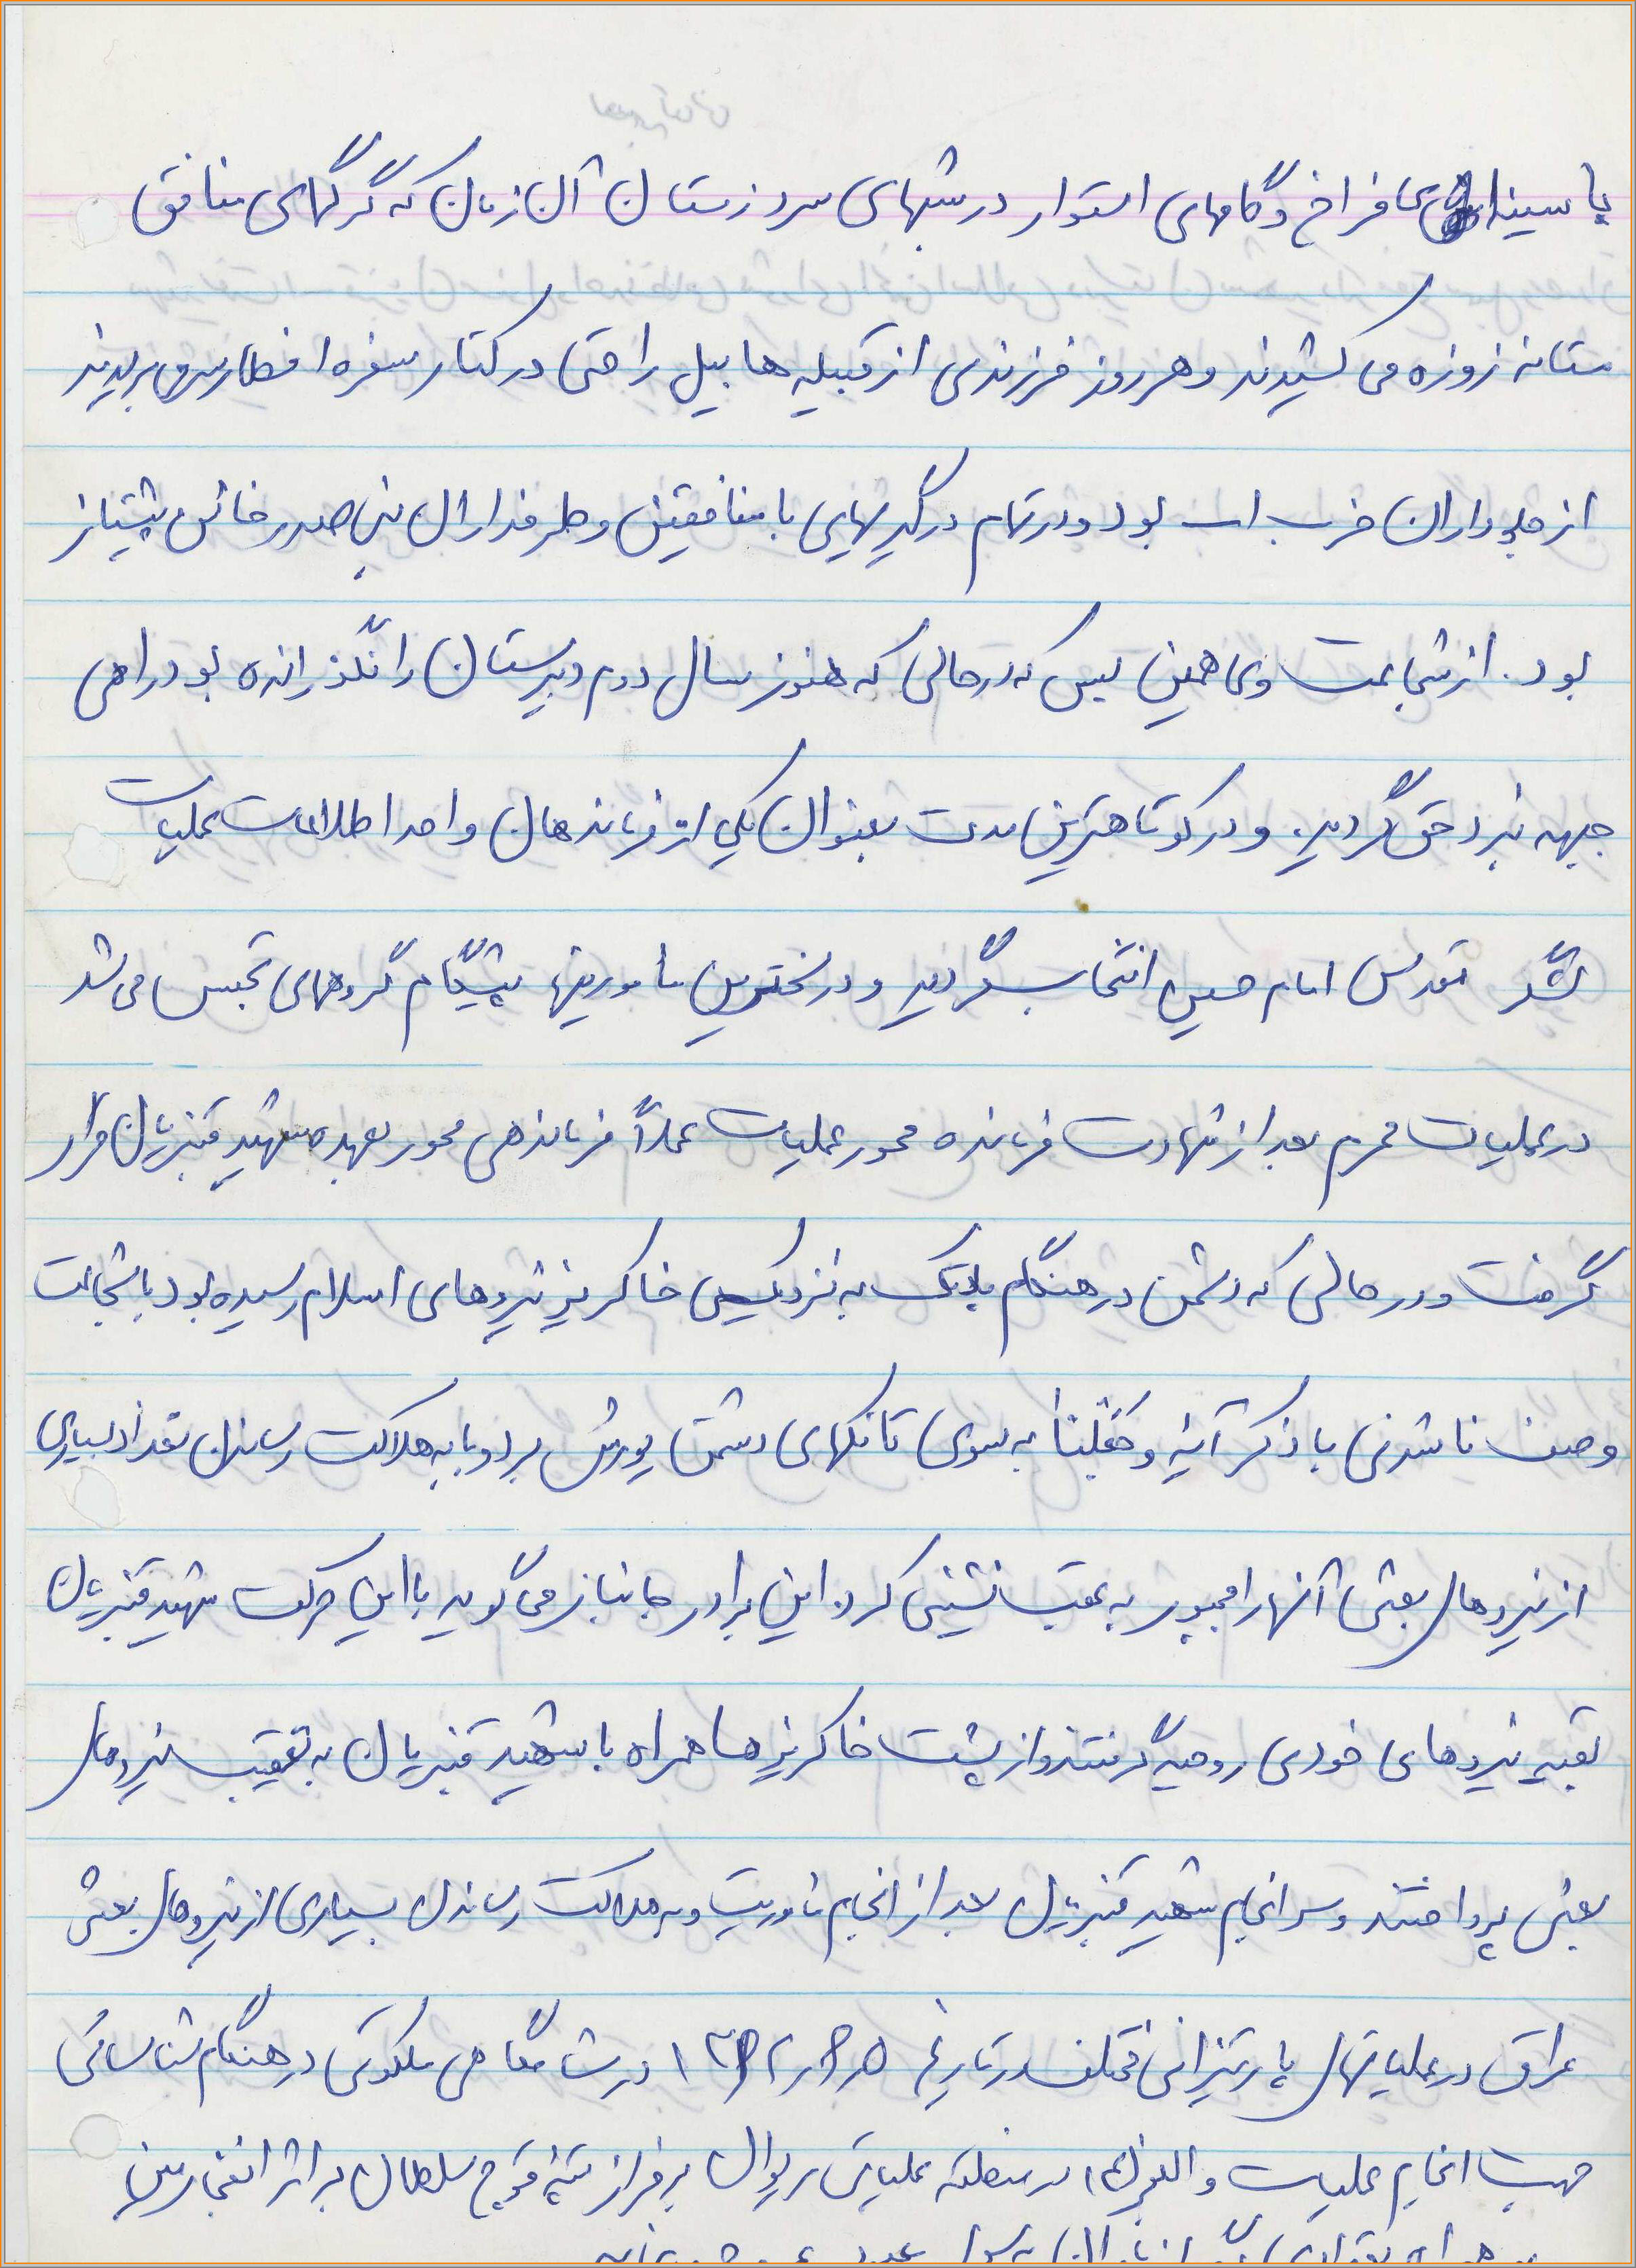 با سینه‌ای فراخ و گامهای استوار در شبهای سرد زمستان آن زمان که گرگهای منافق
مستانه زوزه می کشیدند و هر روز فرزندی از قبیله هابیل را حتی در کنار سفره افطار سر می بریدند
از جلوداران حزب اله بود و در تمام درگیریهایی با منافقین و طرفداران بنی صدر خائن پیشتاز
بود. از شجاعت وی همین بس که در حالی که هنوز سال دوم دبیرستان را نگذرانده بود راهی
جبهه نبرد حق گردید. و در کوتاهترین مدت بعنوان یکی از فرماندهان واحد اطلاعات عملیات
لشگر مقدس امام حسین انتخاب گردید و در سخترین ماموریتها پیشگام گروههای تجسس می شد
در عملیات محرم بعد از شهادت فرمانده محور عملیات عملاً فرماندهی محور بعهده شهید قنبریان قرار
گرفت و در حالی که دشمن در هنگام پاتک به نزدیکی خاکریز نیروهای اسلام رسیده بود با شجاعت
وصف ناشدنی با ذکر آیه وجعلنا به سوی تانکهای دشمن یورش برد و با به هلاکت رساندن تعداد بسیاری
از نیروهای بعثی آنها را مجبور به عقب نشینی کرد. این برادر جانباز می گوید با این حرکت شهید قنبریان
بقیه نیروهای خودی روحیه گرفتند و از پشت خاکریزها همراه با شهید قنبریان به تعقیب نیروهای
بعثی پرداختند و سرانجام شهید قنبریان بعد از انجام ماموریت و به هلاکت رساندن بسیاری از نیروهای بعثی
عراق در عملیاتهای پارتیزانی مختلف در تاریخ ۱۳۶۲/۶/۵ در شامگاهی ملکوتی در هنگام شناسائی
جهت انجام عملیات والفجر ۴ در منطقه عملیاتی مریوان بر فراز تپه قوچ سلطان بر اثر انفجار مین